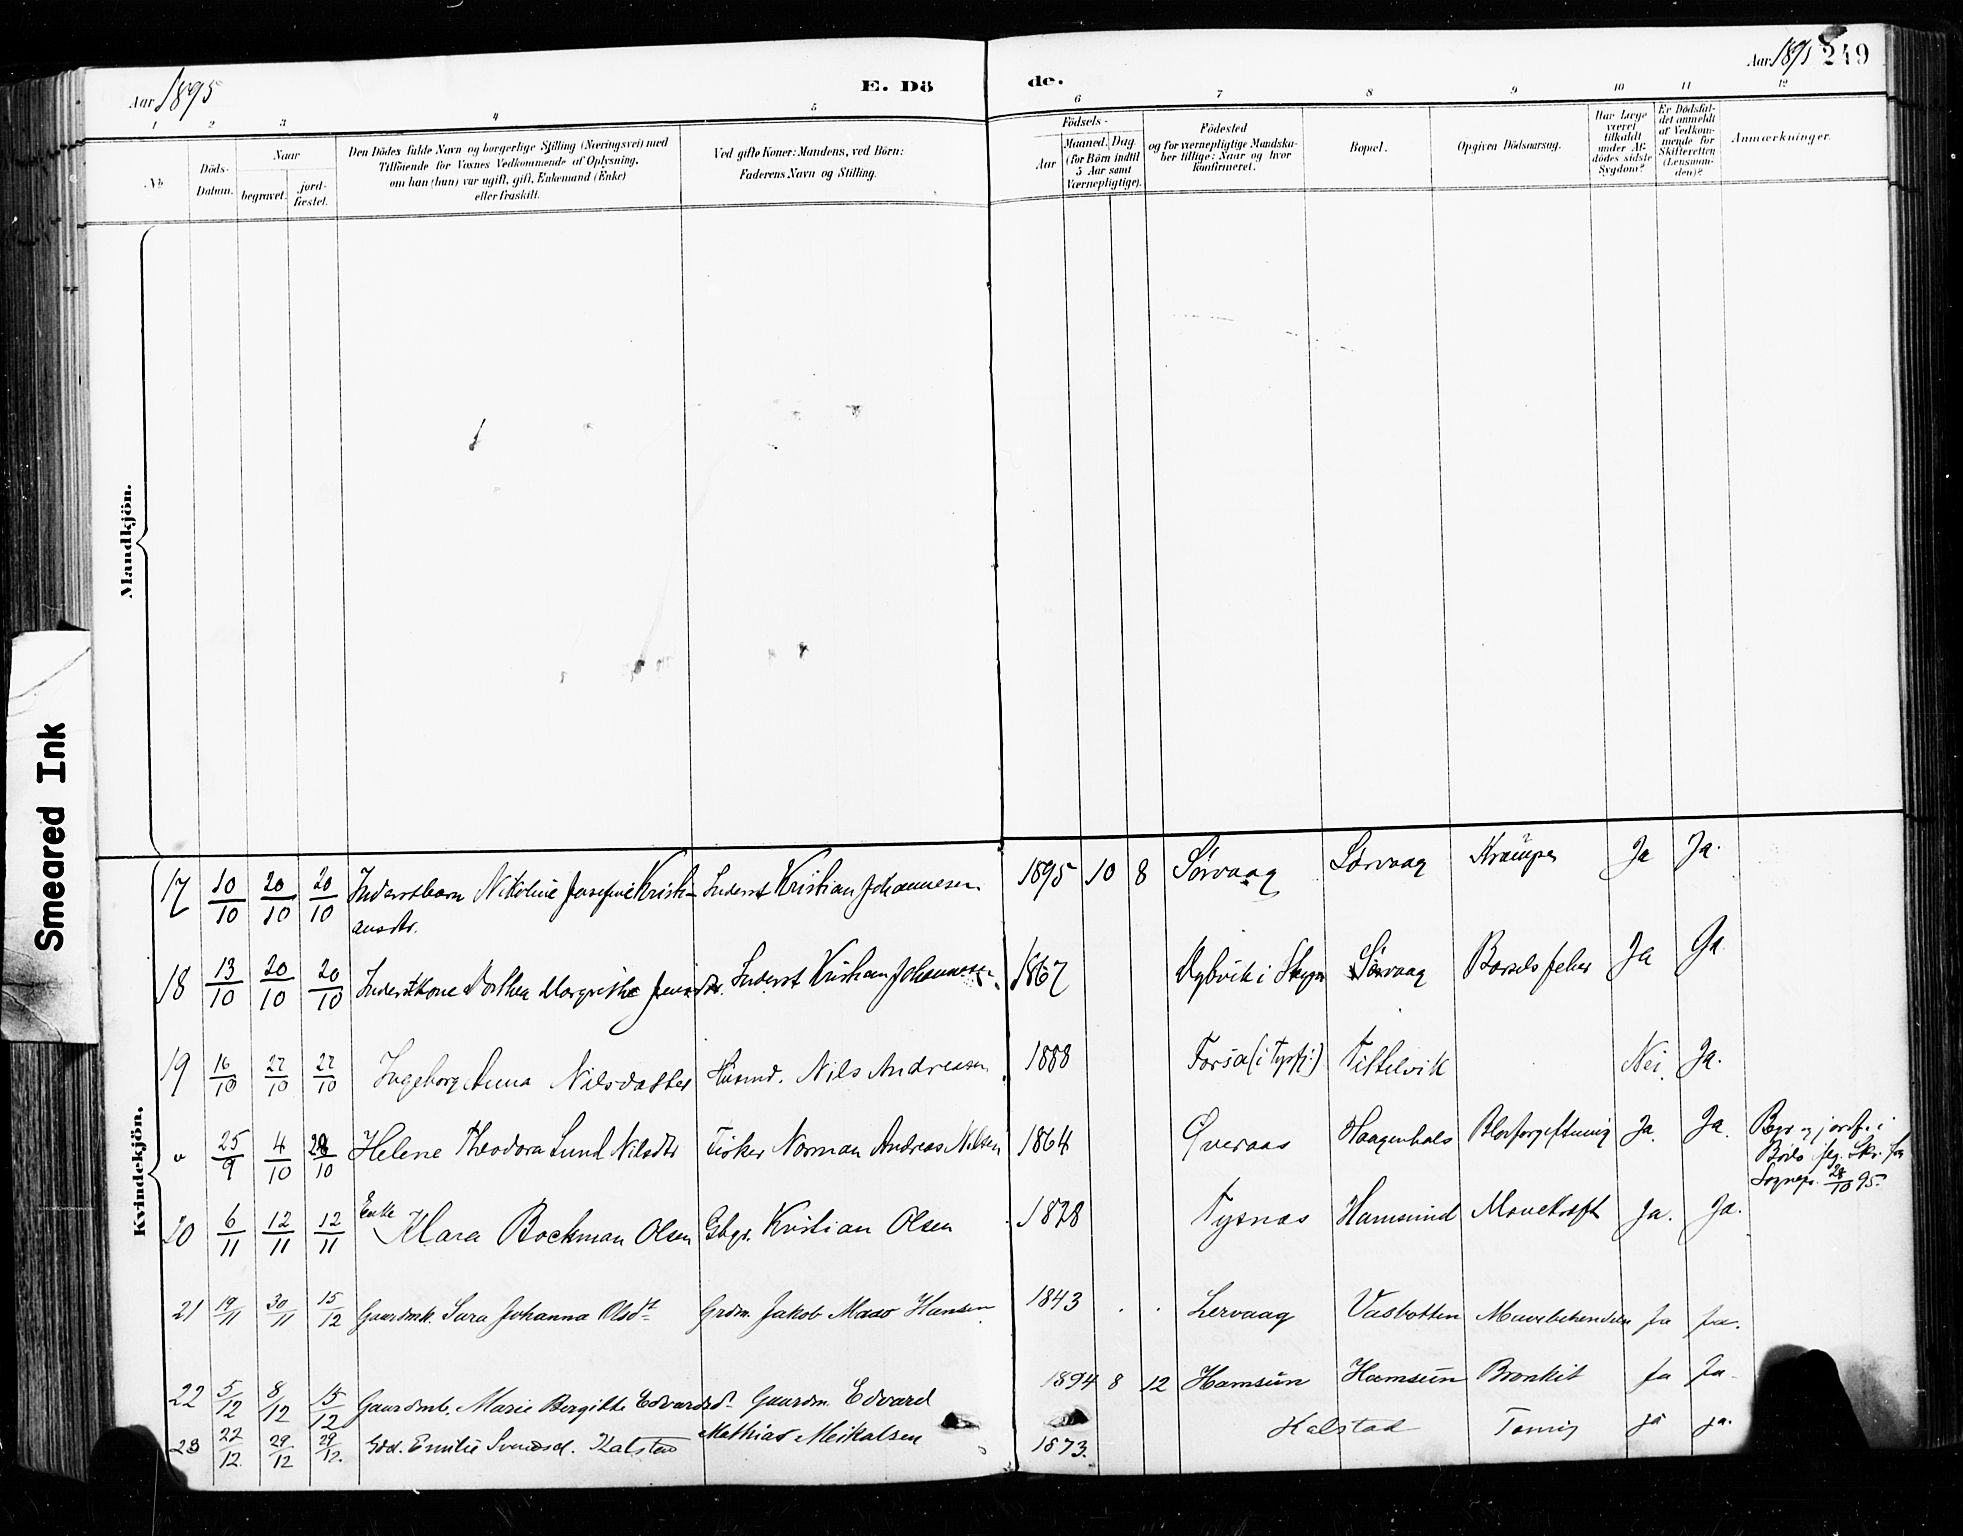 Aar 1895
E. Dö
de.
Aar 1895
249
1 2 3 4 5 6 7 8 9 10 11 12
No.
Döds-
Datum.
Naar
begravet.
jord-
fæstet.
Den Dödes fulde Navn og borgerlige Stilling (Næringsvei) med
Tilföiende for Voxnes Vedkommende af Oplysning,
om han (hun) var ugift, gift, Enkemand (Enke)
eller fraskilt.
Ved gifte Koner: Mandens, ved Börn:
Faderens Navn og Stilling.
Födsels-
Aar
Maaned. Dag
(for Börn indtil
5 Aar samt
Værnepligtige).
Födested
og for værnepligtige Mandska-
ber tillige: Naar og hvor
konfirmeret.
Bopæl.
Opgiven Dödsaarsag.
Har Læge
været
tilkaldt
under Af-
dödes sidste
Sygdom?
Er Dödsfal-
det anmeldt
af Vedkom-
mende for
Skifteretten
(Lensman-
den)?
Anmærkninger.
Mandkjön.
Smeared Ink
Kvindekjön.
17 10/10 20/10 20/10 Inderstbarn Nikoline Josefine Kristi- Inderst Kristian Johannesen 1895 10 8 Sørvaag Sørvaag Kramper Ja Ja.
ansdtr.
18 13/10 20/10 20/10 Inderstkone Dorthea Margrethe Jensdtr. Inderst Kristian Johannesen 1867 Dybvik i Sørvaag Barselsfeber Ja Ja
19 16/10 27/10 27/10 Ingeborg Anna Nilsdatter Husmd. Nils Andreasen 1888 Forsa (i Tysfj:) Tiltelvik Nei. Ja.
" 25/9 4/10 28/10 Helene Theodora Lund Nilsdtr Fisker Norman Andreas Nilsen 1864 Qveraas Haagenhals Blodforgiftning Ja. Ja.
Begr og jordf. i
Bodø flg. Skr. fra
Sognepr. 28/10 95.
20 6/11 12/11 12/11 Enke Klara Bockman Olsen Gbgr. Kristian Olsen 1828 Tysnas Hamsund Mavekræft Ja. Ja.
21 19/11 30/11 15/12 Gaardmk. Sara Johanna Olsdt Grdm. Jakob Maas Hansen 1843 . . Lervaag Vasbotten Ja Ja.
22 5/12 8/12 15/12 Gaardmb. Marie Bergitte Edvardsdt Gaardm. Edvard 1894 8 12 Hamsun Hamsun Bronkit Ja Ja.
Mathias Meikalsen
23 22/12 29/12 29/12 Emilie Svendsd. Kalstad 1873. Kalstad ja ja.